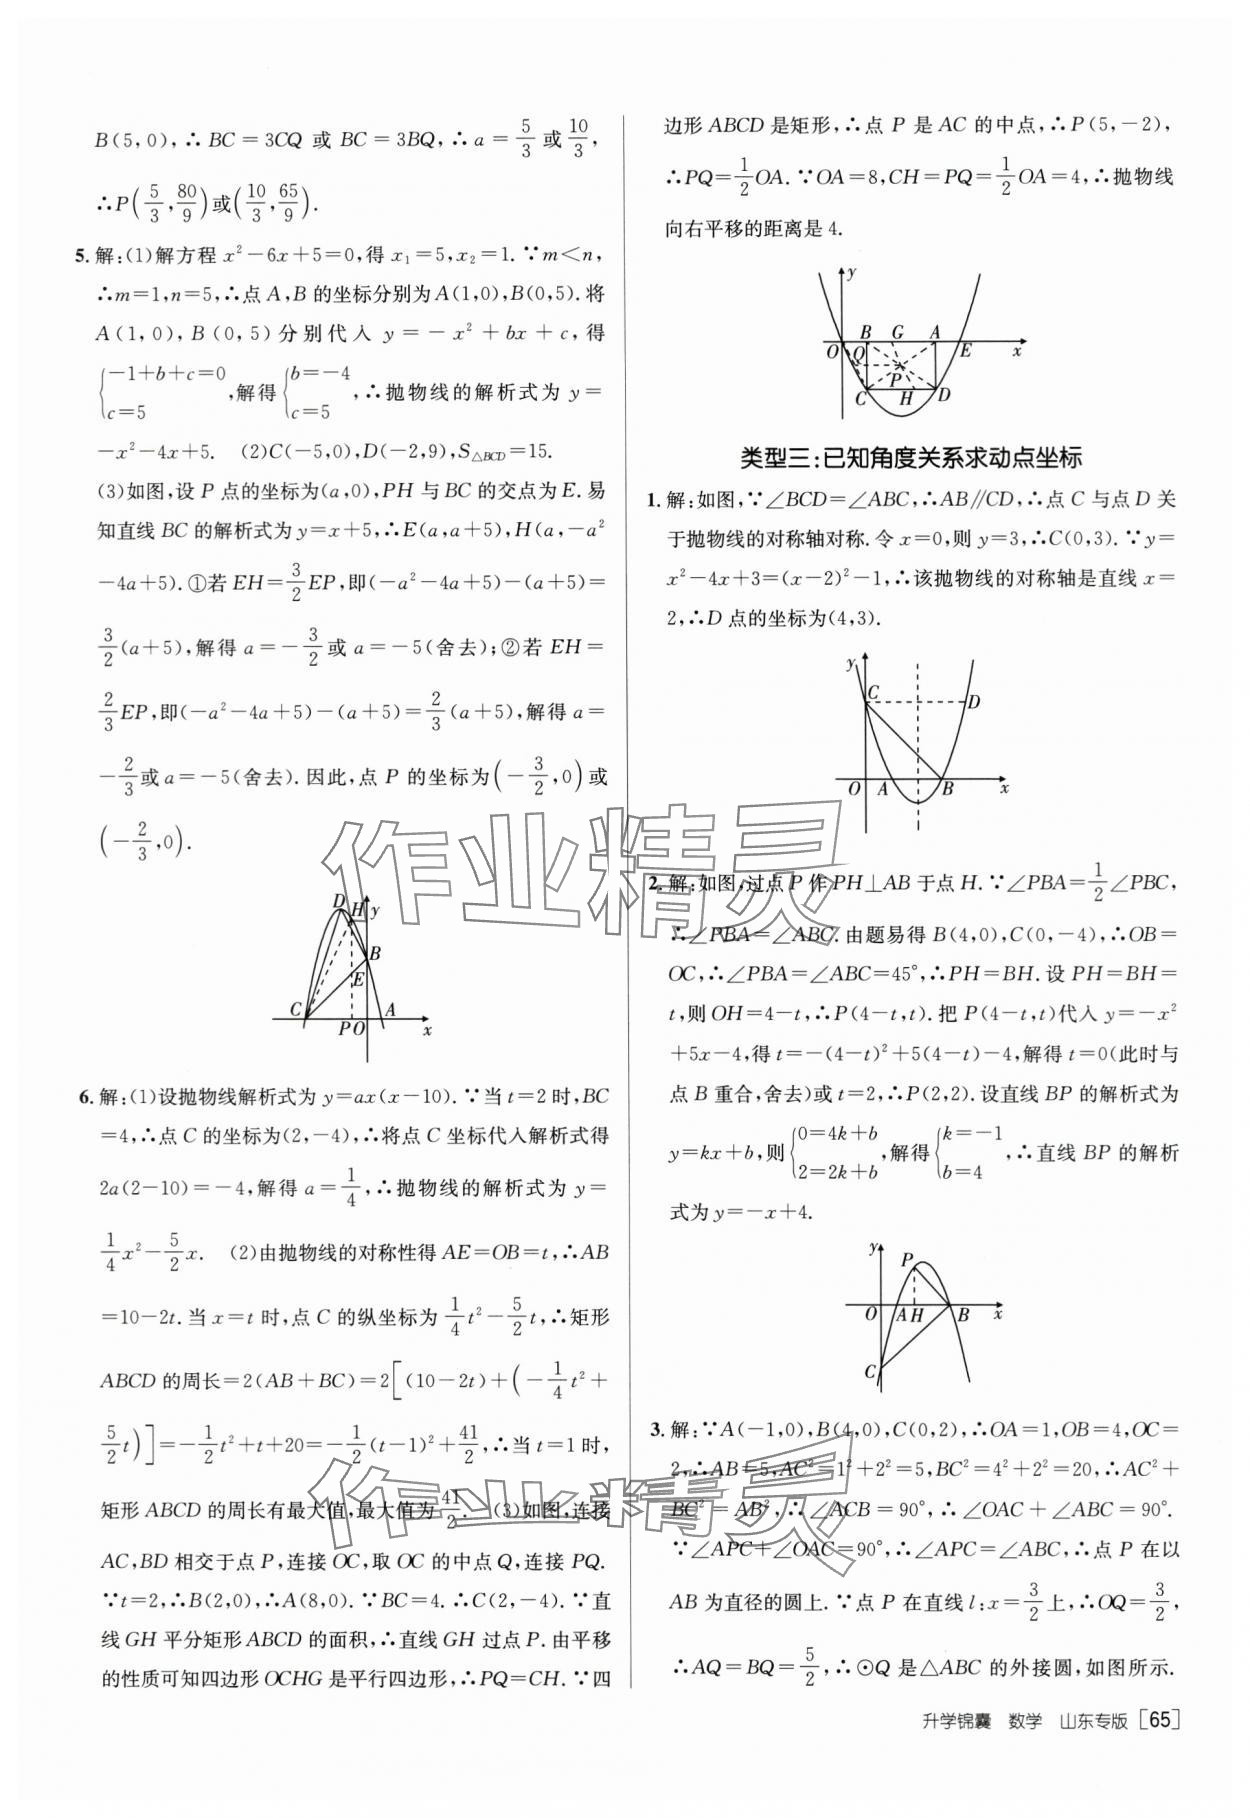 B(5,0),∴BC=3CQ 或 BC=3BQ,∴a=5/3或10/3,
∴P(5/3,80/9)或(10/3,65/9).
5. 解:(1)解方程 x²-6x+5=0,得 x₁=5,x₂=1.∵m<n,
∴m=1,n=5,∴点 A,B 的坐标分别为A(1,0),B(0,5).将
A(1,0),B(0,5)分别代入 y=-x²+bx+c,得
{-1+b+c=0 c=5,解得{b=-4 c=5,∴抛物线的解析式为 y=
-x²-4x+5. (2)C(-5,0),D(-2,9),S△BCD=15.
(3)如图,设 P 点的坐标为(a,0),PH 与 BC 的交点为 E.易
知直线 BC 的解析式为 y=x+5,∴E(a,a+5),H(a,-a²
-4a+5).①若 EH=3/2EP,即(-a²-4a+5)-(a+5)=
3/2(a+5),解得 a=-3/2或 a=-5(舍去);②若 EH=
2/3EP,即(-a²-4a+5)-(a+5)=2/3(a+5),解得 a=
-2/3或 a=-5(舍去).因此,点 P 的坐标为(-3/2,0)或
(-2/3,0).
D H y
B
E
C A
P O x
6. 解:(1)设抛物线解析式为 y=ax(x-10).∵当 t=2 时,BC
=4,∴点 C 的坐标为(2,-4),∴将点 C 坐标代入解析式得
2a(2-10)=-4,解得 a=1/4,∴抛物线的解析式为 y=
1/4x²-5/2x. (2)由抛物线的对称性得 AE=OB=t,∴AB
=10-2t.当 x=t 时,点 C 的纵坐标为 1/4t²-5/2t,∴矩形
ABCD 的周长=2(AB+BC)=2[(10-2t)+(-1/4t²+
5/2t)]=-1/2t²+t+20=-1/2(t-1)²+41/2,∴当 t=1 时,
矩形 ABCD 的周长有最大值,最大值为41/2. (3)如图,连接
AC,BD 相交于点 P,连接 OC,取 OC 的中点 Q,连接 PQ.
∵t=2,∴B(2,0),∴A(8,0).∵BC=4.∴C(2,-4).∵直
线 GH 平分矩形 ABCD 的面积,∴直线 GH 过点 P.由平移
的性质可知四边形 OCHG 是平行四边形,∴PQ=CH.∵四
边形 ABCD 是矩形,∴点 P 是 AC 的中点,∴P(5,-2),
∴PQ=1/2OA.∵OA=8,CH=PQ=1/2OA=4,∴抛物线
向右平移的距离是 4.
y
B G A
O Q E x
P
C H D
类型三:已知角度关系求动点坐标
1. 解:如图,∵∠BCD=∠ABC,∴AB∥CD,∴点 C 与点 D 关
于抛物线的对称轴对称.令 x=0,则 y=3,∴C(0,3).∵y=
x²-4x+3=(x-2)²-1,∴该抛物线的对称轴是直线 x=
2,∴D 点的坐标为(4,3).
y
C D
O A B x
2. 解:如图,过点 P 作 PH⊥AB 于点 H.∵∠PBA=1/2∠PBC,
∴∠PBA=∠ABC.由题易得 B(4,0),C(0,-4),∴OB=
OC,∴∠PBA=∠ABC=45°,∴PH=BH.设 PH=BH=
t,则 OH=4-t,∴P(4-t,t).把 P(4-t,t)代入 y=-x²
+5x-4,得 t=-(4-t)²+5(4-t)-4,解得 t=0(此时与
点 B 重合,舍去)或 t=2,∴P(2,2).设直线 BP 的解析式为
y=kx+b,则{0=4k+b 2=2k+b,解得{k=-1 b=4,∴直线 BP 的解析
式为 y=-x+4.
y
P
O A H B x
C
3. 解:∵A(-1,0),B(4,0),C(0,2),∴OA=1,OB=4,OC=
2,∴AB=5,AC²=1²+2²=5,BC²=4²+2²=20,∴AC²+
BC²=AB²,∴∠ACB=90°,∴∠OAC+∠ABC=90°.
∵∠APC+∠OAC=90°,∴∠APC=∠ABC,∴点 P 在以
AB 为直径的圆上.∵点 P 在直线 l:x=3/2上,∴OQ=3/2,
∴AQ=BQ=5/2,∴⊙Q 是△ABC 的外接圆,如图所示.
升学锦囊 数学 山东专版 [65]
作业精灵
作业精灵